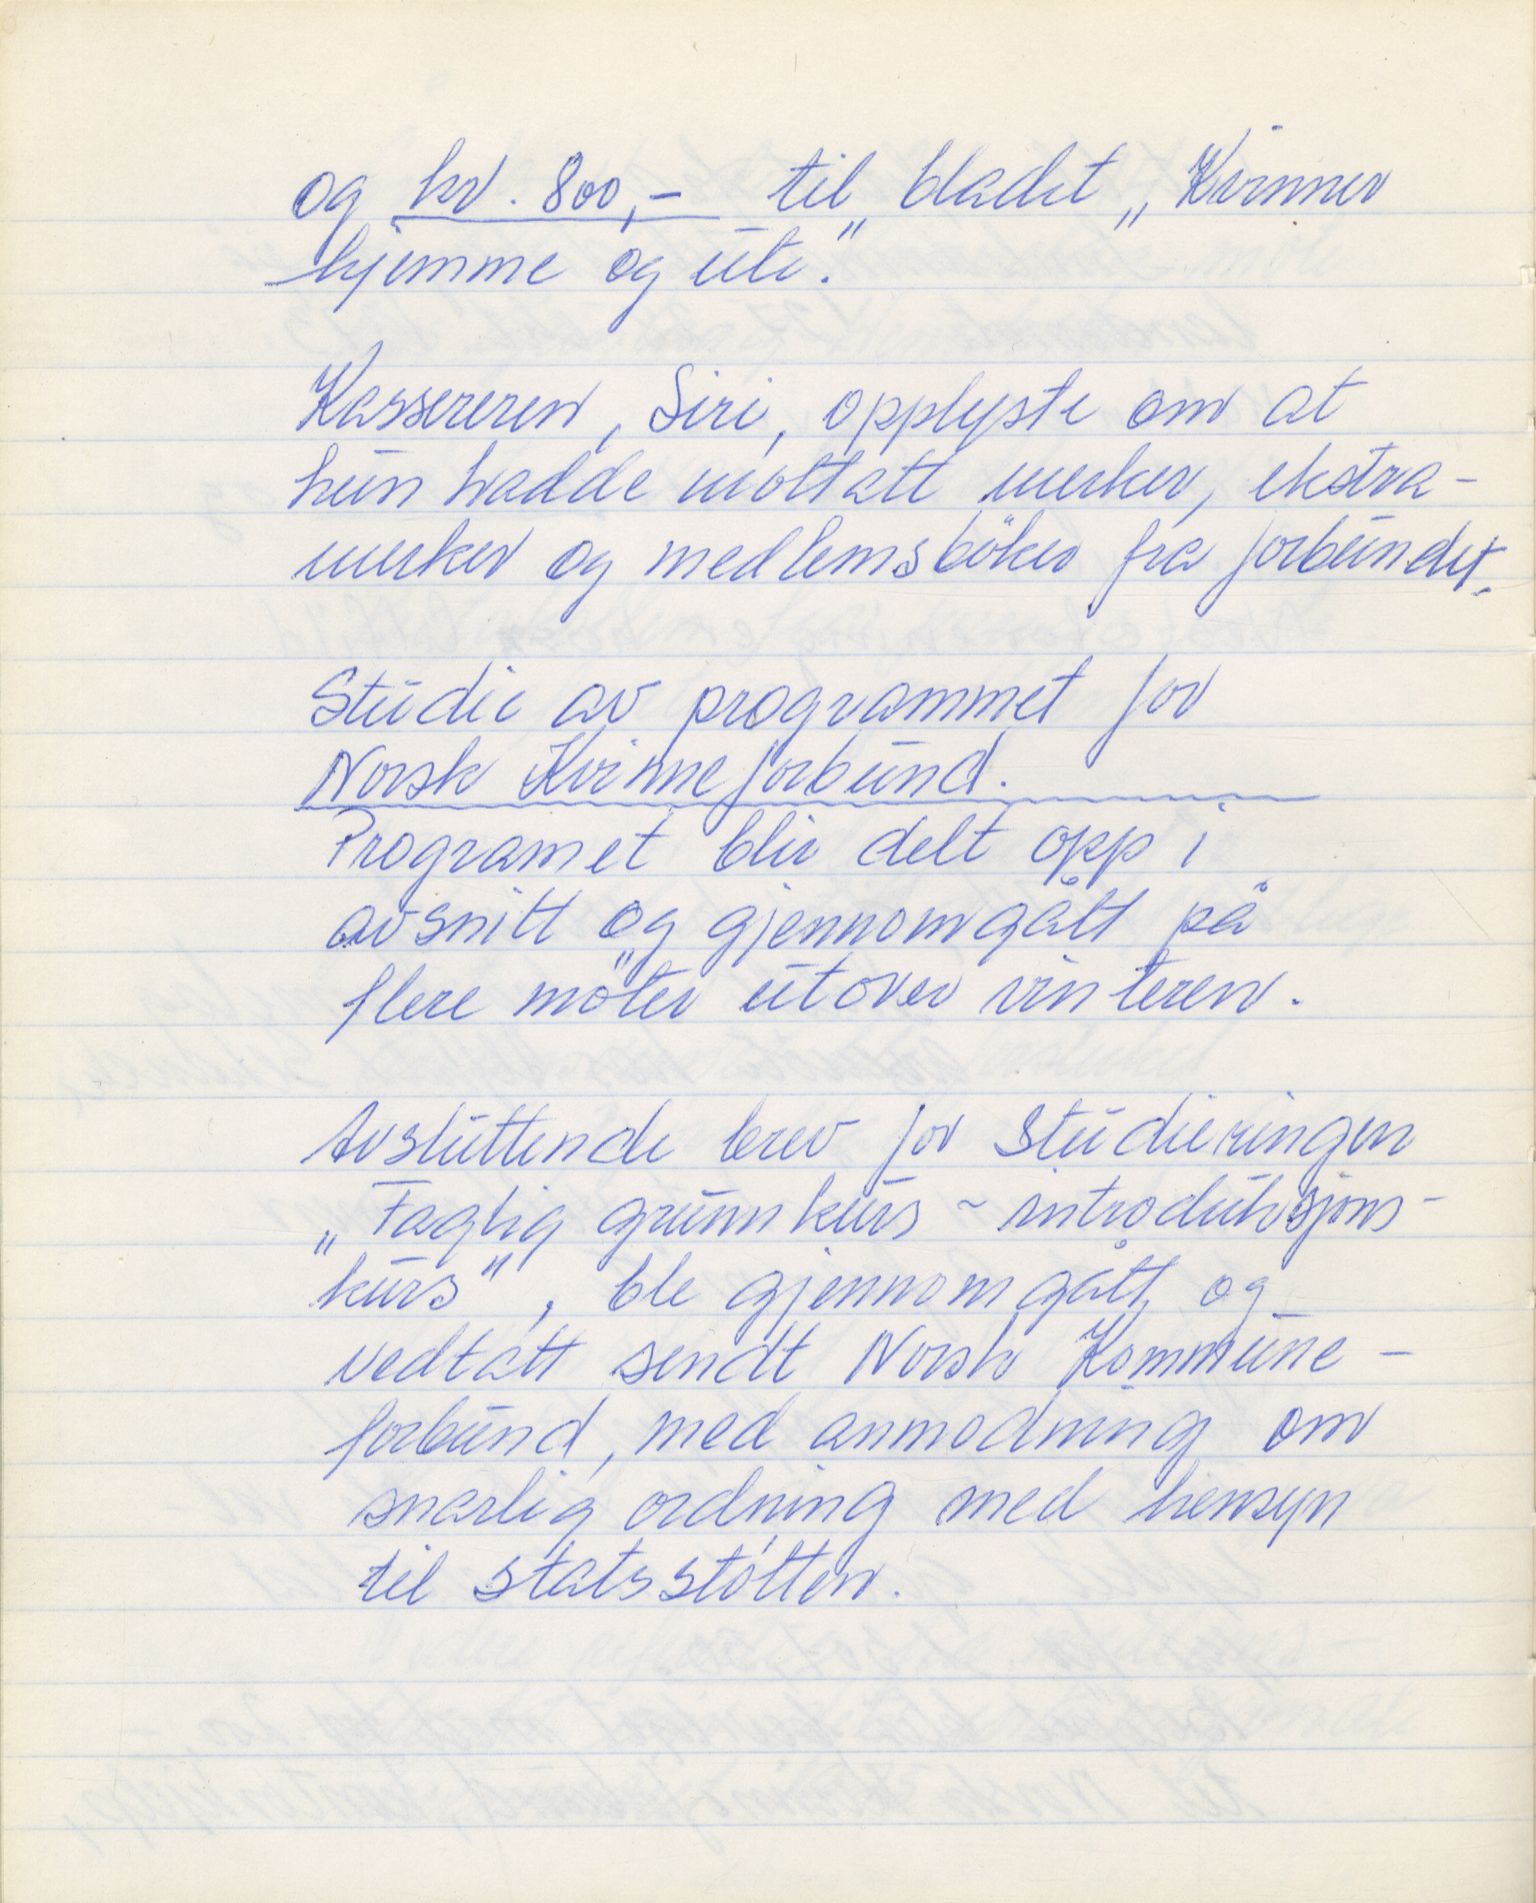 og kr. 800,- til bladet „Kvinner
hjemme og ute."
Kassereren, Siri, opplyste om at
hun hadde mottatt merker, ekstra-
merker og medlemsböker fra forbundet.
Studie av programmet for
Norsk Kvinneforbund.
Programet blir delt opp i
avsnitt og gjennomgått på
flere möter utover vinteren.
Avsluttende brev for Studieringen
„Faglig grunnkurs - introduksjons-
kurs", ble gjennomgått og
vedtatt sendt Norsk Kommune-
forbund, med anmodning om
snarlig ordning med hensyn
til statsstøtten.